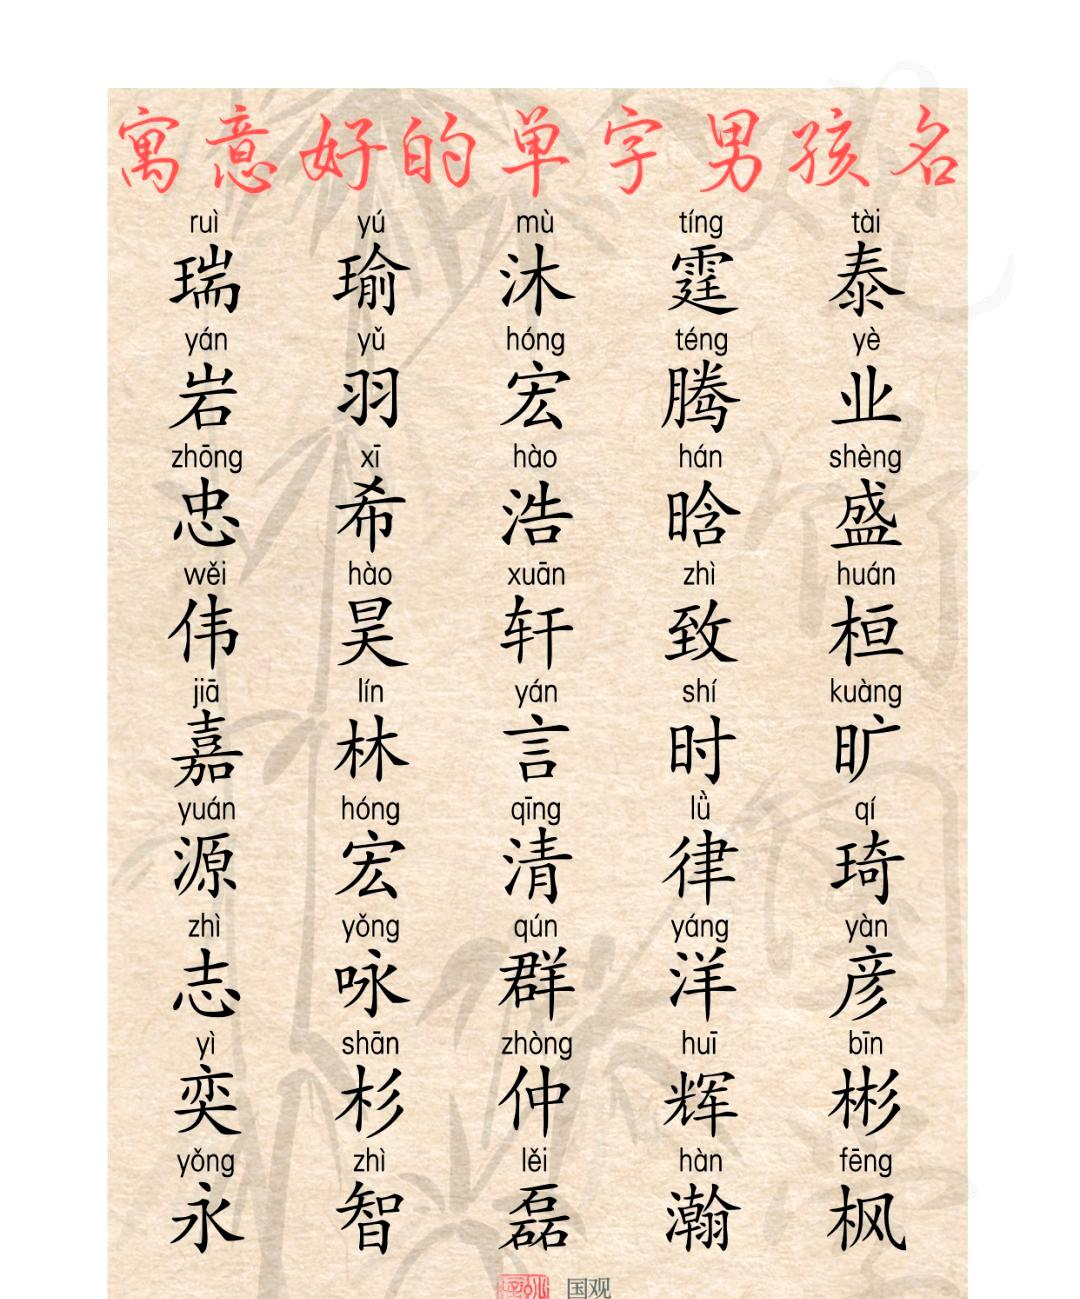 寓意好的单字男孩名
ruì yú mù tíng tài
瑞 瑜 沐 霆 泰
yán yǔ hóng téng yè
岩 羽 宏 腾 业
zhōng xī hào hán shèng
忠 希 浩 晗 盛
wěi hào xuān zhì huán
伟 昊 轩 致 桓
jiā lín yán shí kuàng
嘉 林 言 时 旷
yuán hóng qīng lǜ qí
源 宏 清 律 琦
zhì yǒng qún yáng yàn
志 咏 群 洋 彦
yì shān zhòng huī bīn
奕 杉 仲 辉 彬
yǒng zhì lěi hàn fēng
永 智 磊 瀚 枫
国观